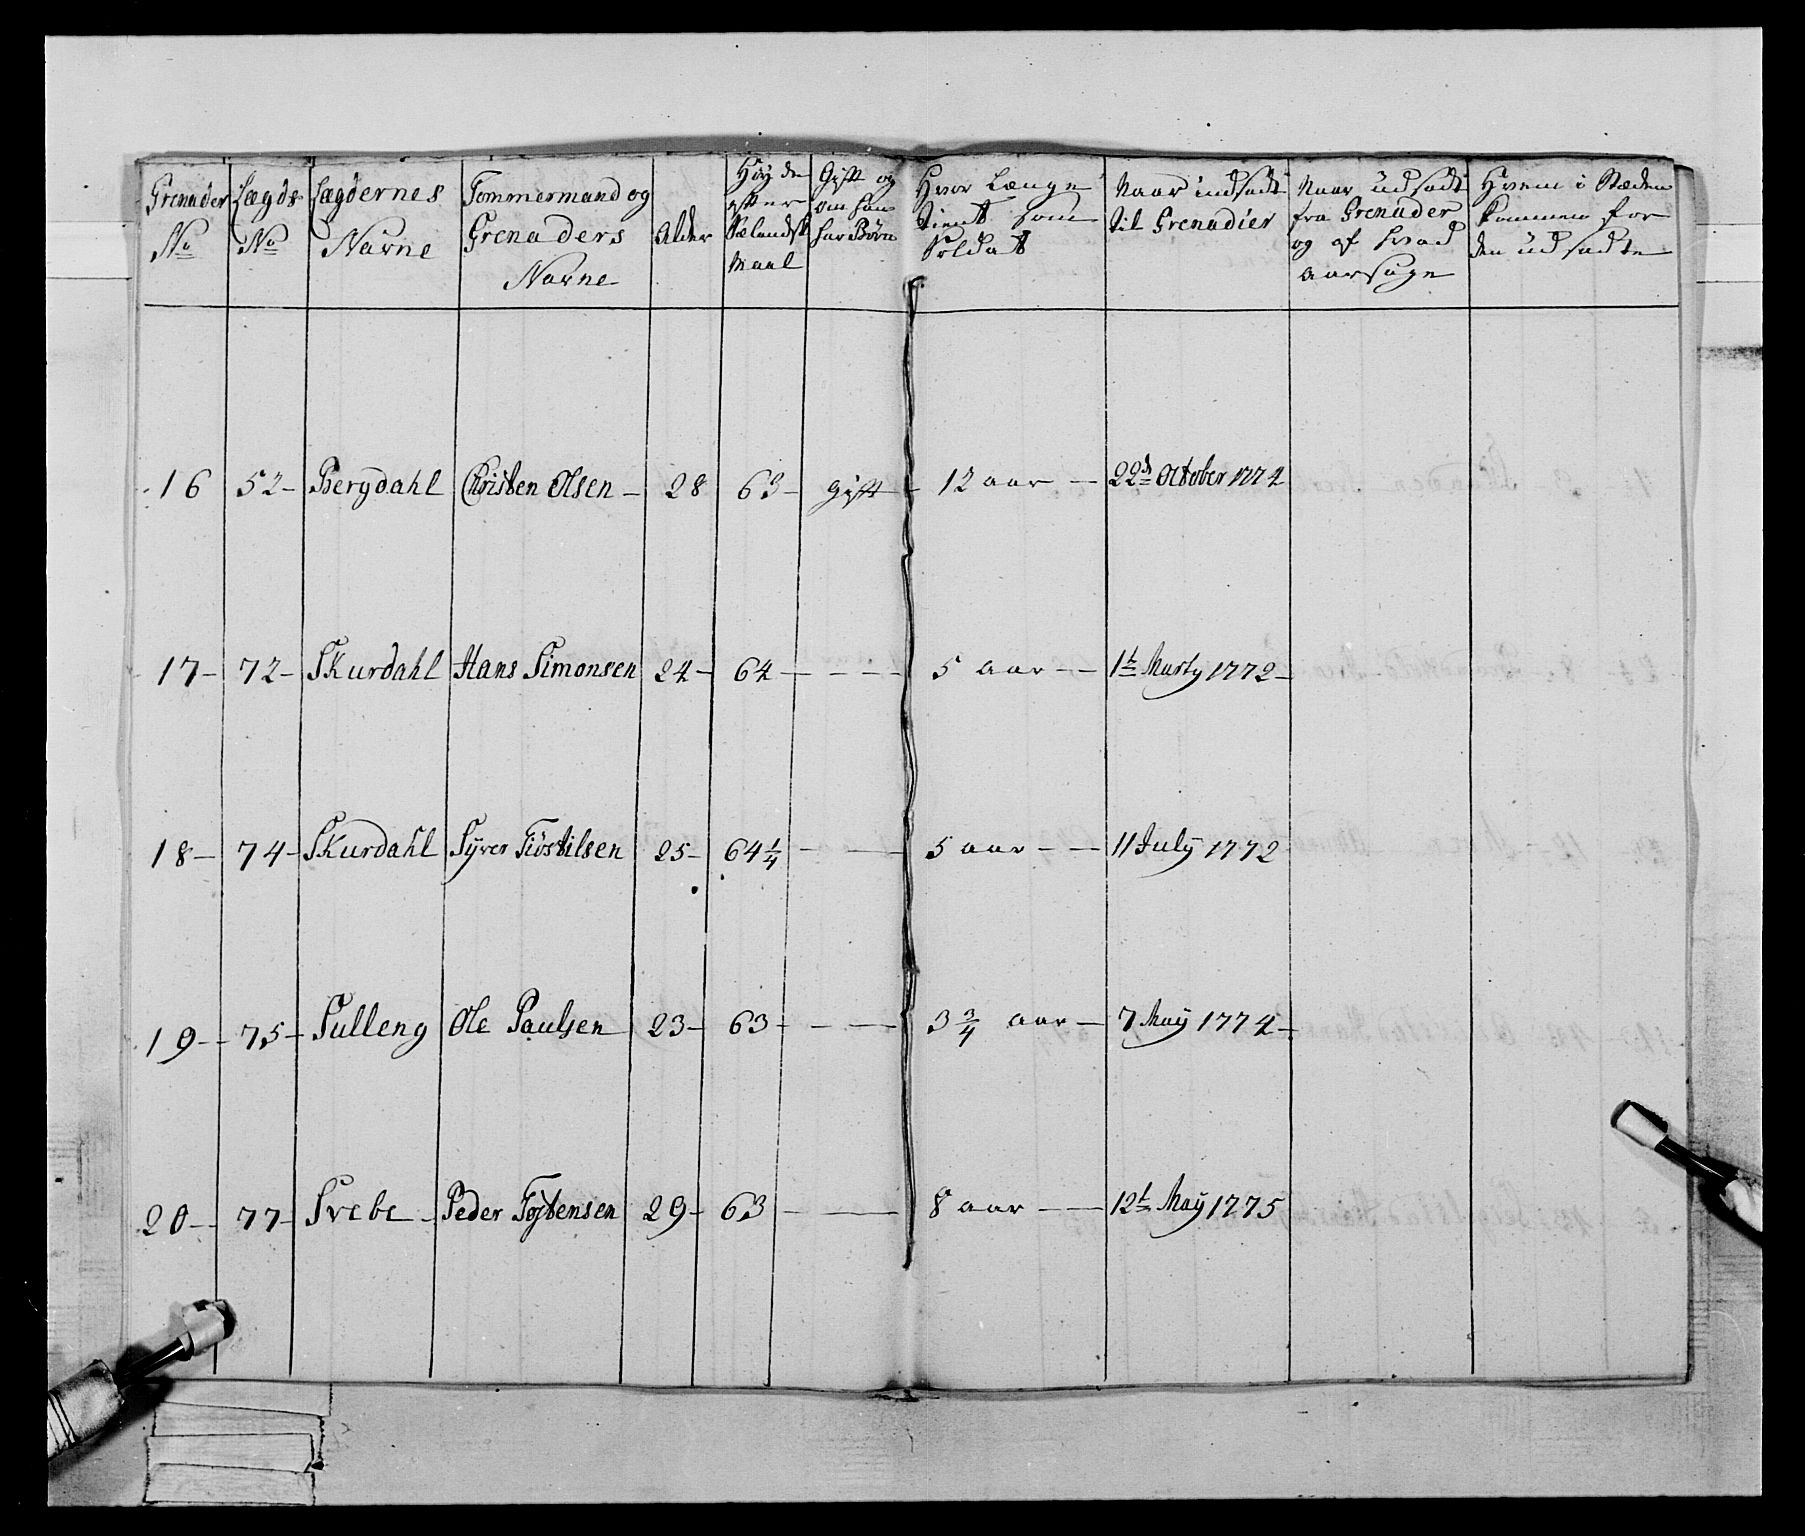 Grenader No
Lægds No
Lægdernes Navne
Tømmermand og Grenaders Navne
Alder
Høyde efter Sælandsk Maal
Gift og om han har Børn
Hvor Længe tient som Soldat
Naar indsadt til Grenadier
Naar udsadt fra Grenader og af hvad aarsage
Hvem i Stæden kommen for den udsadte
16 52- Bergdahl Christen Olsen - 28 63- gift - 12 aar -- 22d October 1774
17- 72- Skurdahl Hans Simonsen 24- 64 - - - - 5 aar -- 1t Marty 1772-
18- 74- Skurdahl Syver Tiöstilsen 25- 64 1/4 - - - 5 aar -- 11 July 1772
19- 75- Sulleng Ole Paulsen 23- 63 - - - 3 3/4 aar - 7 May 1774-
20- 77- Svebe - Peder Tostensen 29- 63 - - 8 aar -- 12t May 1775